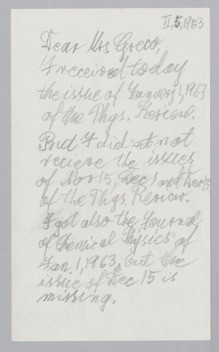 II, 5, 1963
Dear Mrs Greco,
I received today
the issue of January 1, 1963
of the Phys. Review.
But I did not
recieve the issues
of Nov 15, Dec 1 and Dec 15
of the Phys. Review.
I got also the Journal
of Chemical Physics of
Jan. 1, 1963, but the
issue of Dec 15 is
missing.